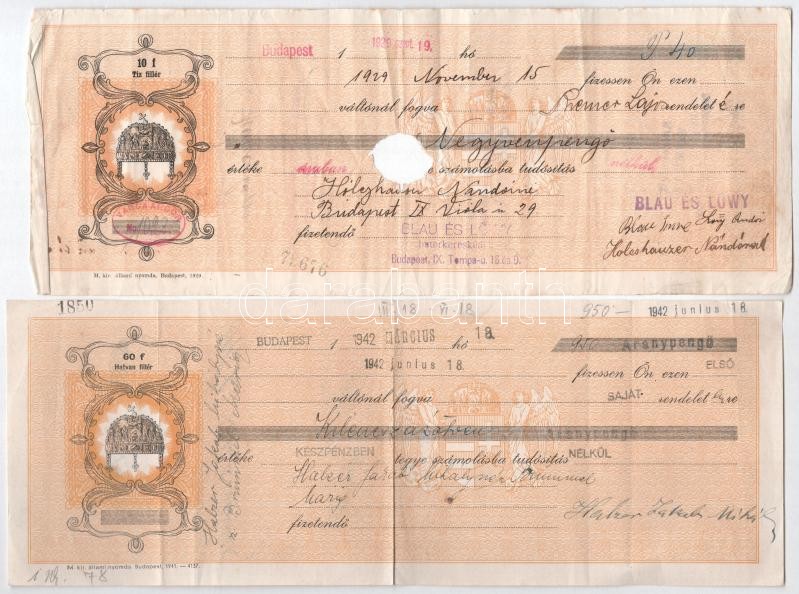 10 f
Tíz fillér
Budapest 1 1929 szept 19. hó P 40
1929 November 15 fizessen Ön ezen
váltónál fogva Kremer Lajos rendelet é re
Negyvenpengő
értéke áruban számolásba tudósítás nélkül
Holczhauser Nándorné
Budapest IX Viola u 29
fizetendő
BLAU ÉS LŐWY
Budapest, IX. Tompa-u.
BLAU ÉS LŐWY
Blau Imre Lőwy Andor
Holczhauzer Nándorné
72.676
M. kir. állami nyomda. Budapest, 1929.
1850
III 18 VI 18 950 — 1942 junius 18.
60 f
Hatvan fillér
BUDAPEST 1 1942 MÁRCIUS 18. hó 950 Aranypengő
1942 junius 18. fizessen Ön ezen ELSŐ
váltónál fogva SAJÁT rendelet re
Kilencszázötven Aranypengő
értéke KÉSZPÉNZBEN tegye számolásba tudósítás NÉLKÜL
Halzer Jakab Mihály né
fizetendő
Halzer Jakab Mihály
M. kir. állami nyomda. Budapest, 1941. — 4137.
78
darabanth